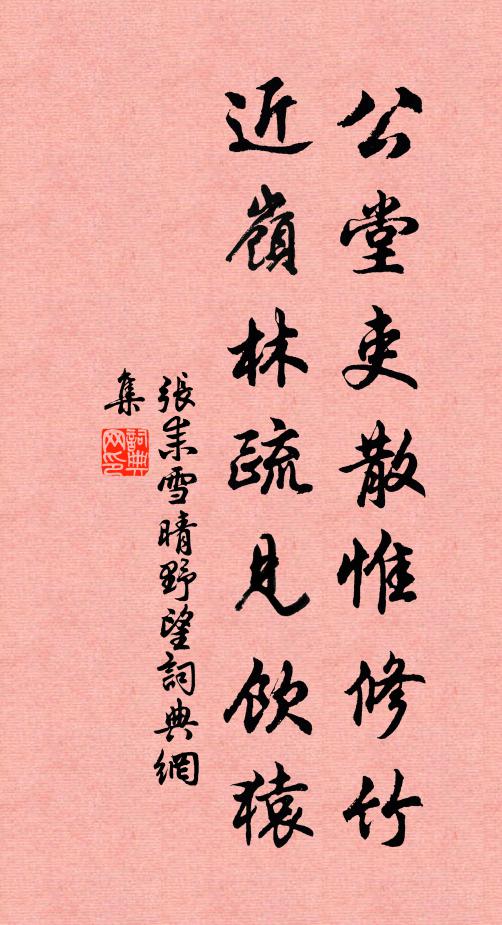 公堂吏散惟修竹
近嶺林疏見飲猿
張耒雪晴野望詞典網
集
詞典网印